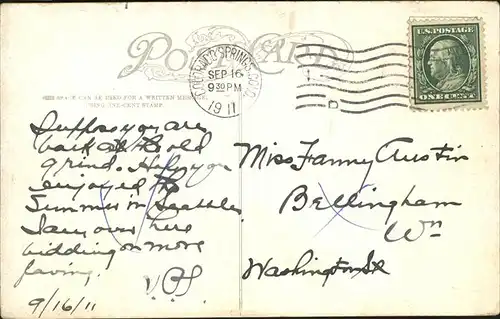 POST CARD
COLORADO SPRINGS, COLO.
SEP 16
9 30 PM
1911
U.S. POSTAGE
ONE CENT
THIS SPACE CAN BE USED FOR A WRITTEN MESSAGE,
USING ONE-CENT STAMP.
Suppose you are
back at the old
grind. Hope you
enjoyed the
Summer in Seattle.
I am over here
bidding on more
paving.
9/16/11
Miss Fanny Austin
Bellingham
Wn
Washington St